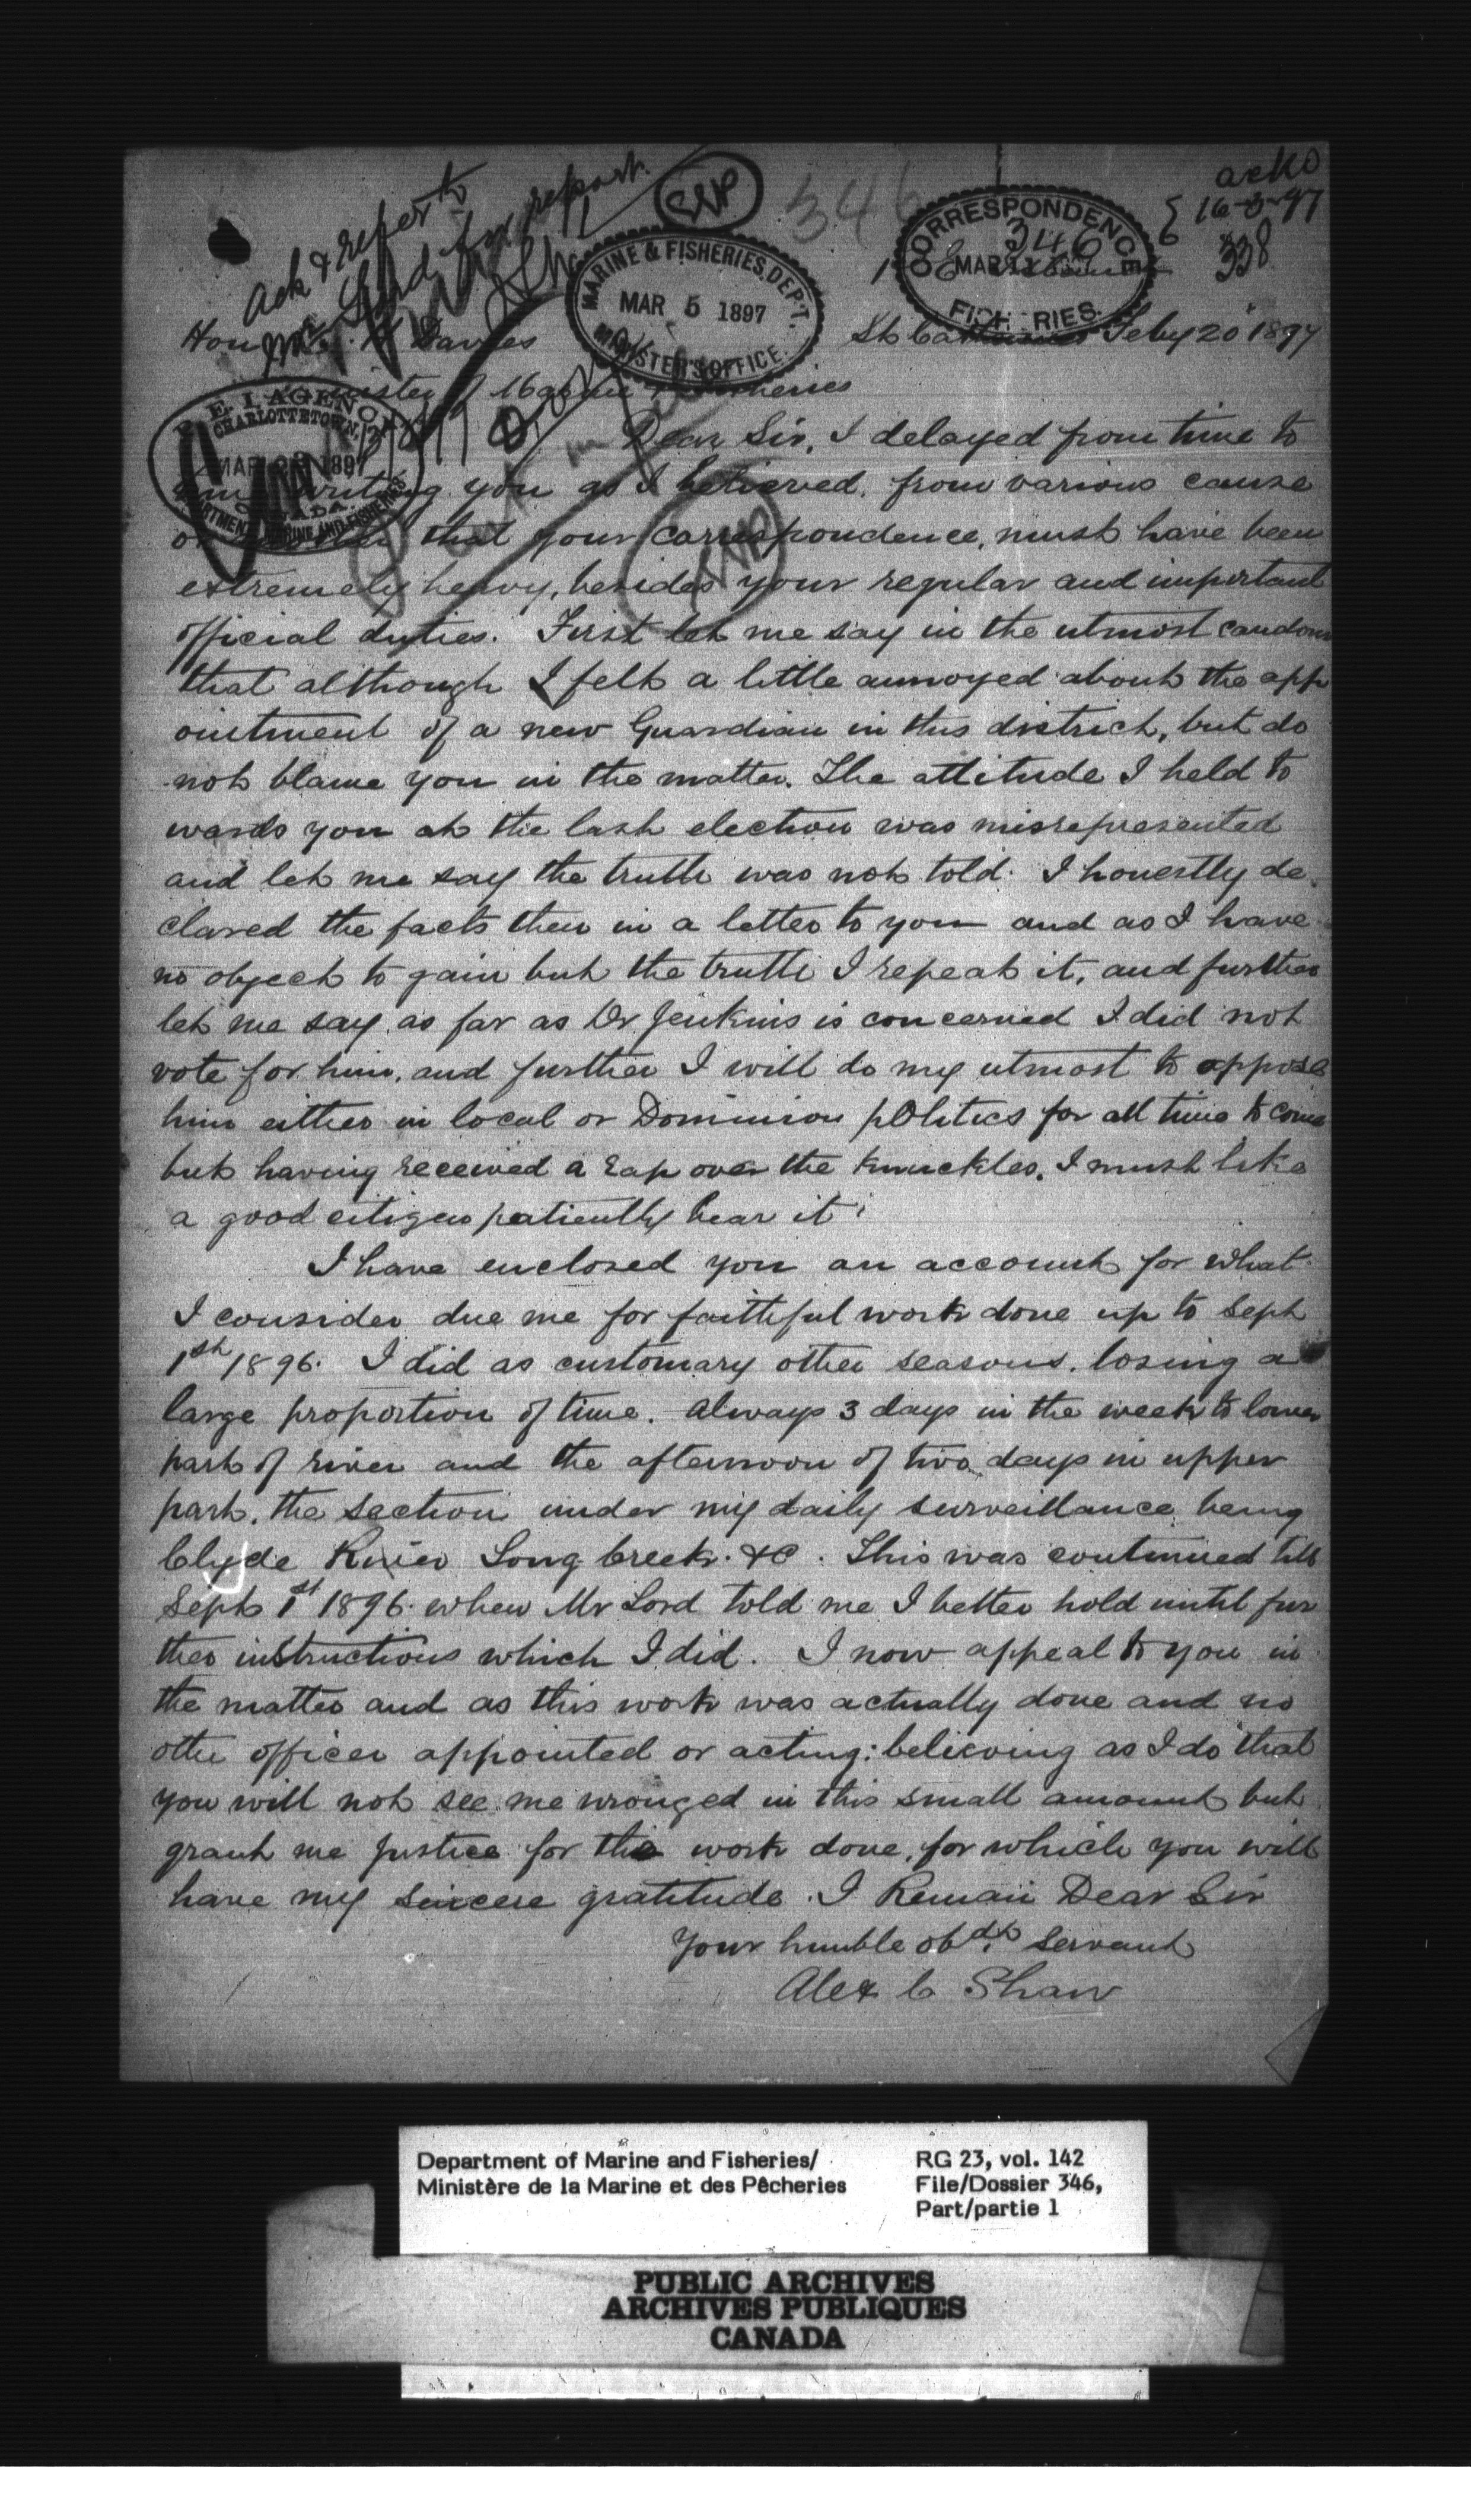 Ack & refer to
Mr Lord for report.
346
ackd
16-3-97
338
CORRESPONDENCE
346
MAR
FISHERIES
MARINE & FISHERIES DEP'T.
MAR 5 1897
MINISTER'S OFFICE.
P.E.I. AGENCY
CHARLOTTETOWN,
MAR 1897
CANADA.
DEPARTMENT MARINE AND FISHERIES
Hon Davies
St Catherines Feby 20 1897
Minister of Marine & Fisheries
Dear Sir, I delayed from time to
time writing you as I believed, from various cause
or that your correspondence, must have been
extremely heavy, besides your regular and important
official duties. First let me say in the utmost candour
that although I felt a little annoyed about the app
ointment of a new Guardian in this district, but do
not blame you in the matter. The attitude I held to
wards you at the last election was misrepresented
and let me say the truth was not told. I honestly de
clared the facts then in a letter to you and as I have
no object to gain but the truth I repeat it, and further
let me say as far as Dr Jenkins is concerned I did not
vote for him, and further I will do my utmost to oppose
him either in local or Dominion politics for all time to come
but having received a rap over the knuckles, I must like
a good citizen patiently bear it.
I have enclosed you an account for what
I consider due me for faithful work done up to Sept
1st 1896. I did as customary other seasons, losing a
large proportion of time. Always 3 days in the week to lower
part of river and the afternoon of two days in upper
part, the section under my daily surveillance being
Clyde River Long Creek &c. This was continued till
Sept 1st 1896 when Mr Lord told me I better hold until fur
ther instructions which I did. I now appeal to you in
the matter and as this work was actually done and no
other officer appointed or acting; believing as I do that
you will not see me wronged in this small amount but
grant me Justice for the work done, for which you will
have my sincere gratitude. I Remain Dear Sir
Your humble obdt. Servant
Alex C Shaw
Department of Marine and Fisheries/
Ministère de la Marine et des Pêcheries
RG 23, vol. 142
File/Dossier 346,
Part/partie 1
PUBLIC ARCHIVES
ARCHIVES PUBLIQUES
CANADA